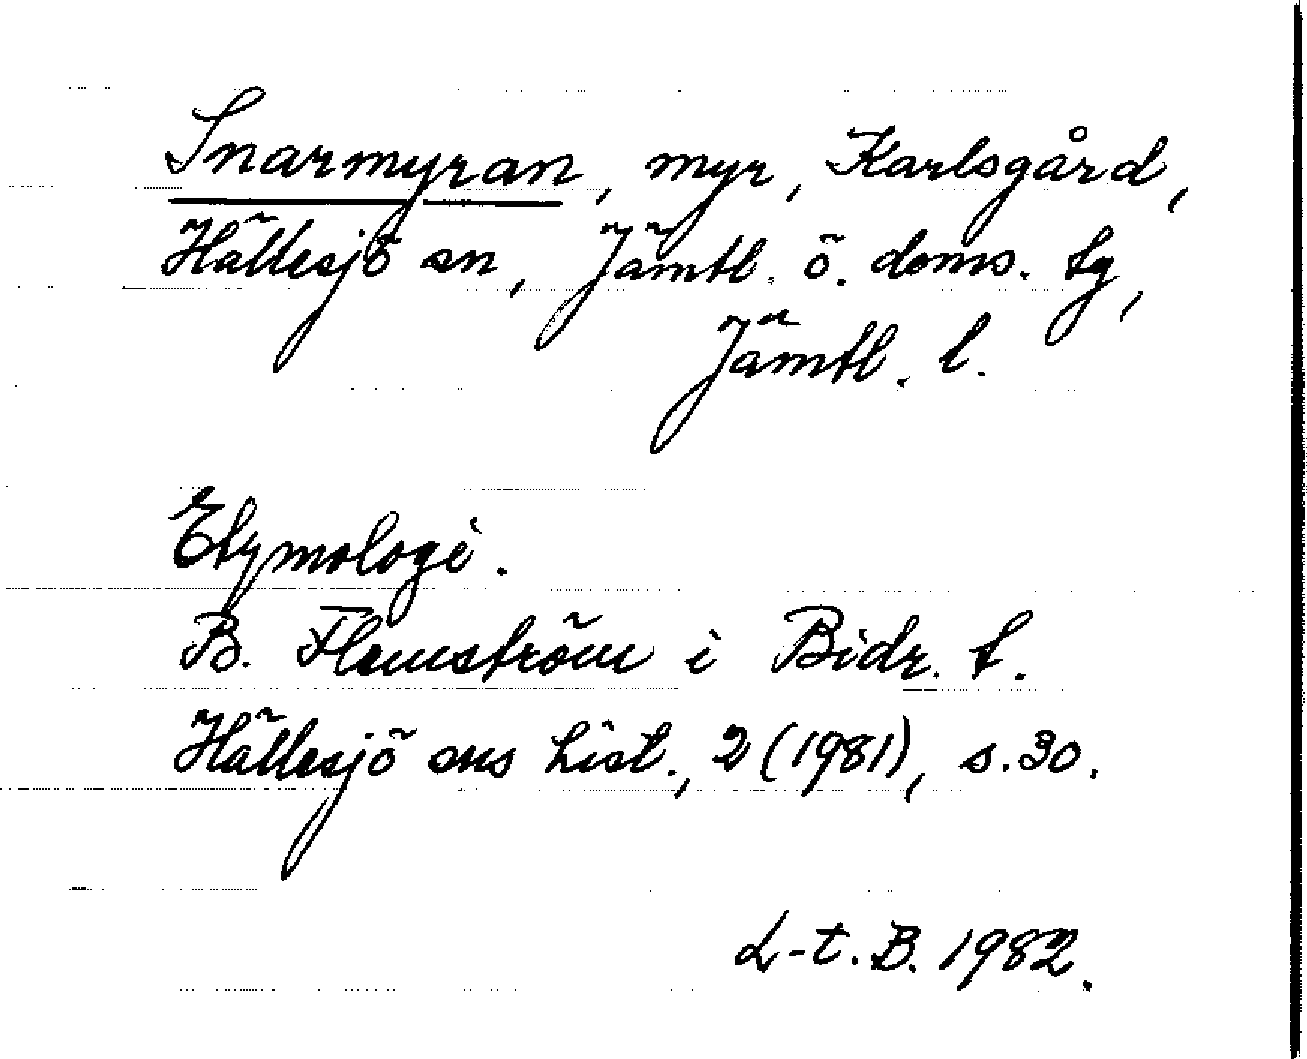 Snarmyran, myr, Karlsgård,
Hällesjö sn, Jämtl. ö. doms. tg,
Jämtl. l.
Etymologi.
B. Flemström i Bidr. t.
Hällesjö sns hist., 2 (1981), s. 30.
L-t. B. 1982.